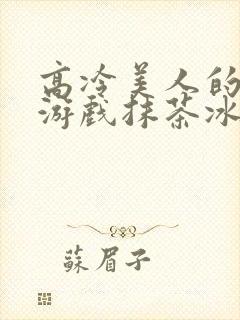 高冷美人的
游戏抹茶冰
蘇眉子